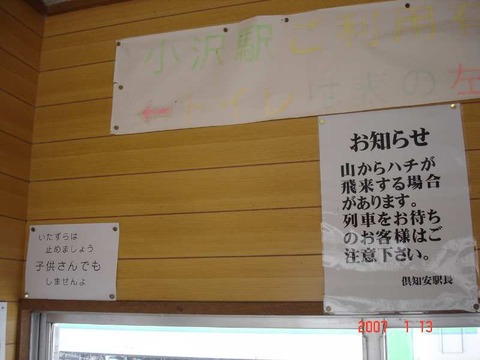 小沢駅ご利用
←トイレは表の左
お知らせ
山からハチが
飛来する場合
があります。
列車をお待ち
のお客様はご
注意下さい。
倶知安駅長
いたずらは
止めましょう
子供さんでも
しませんよ
2007 1 13